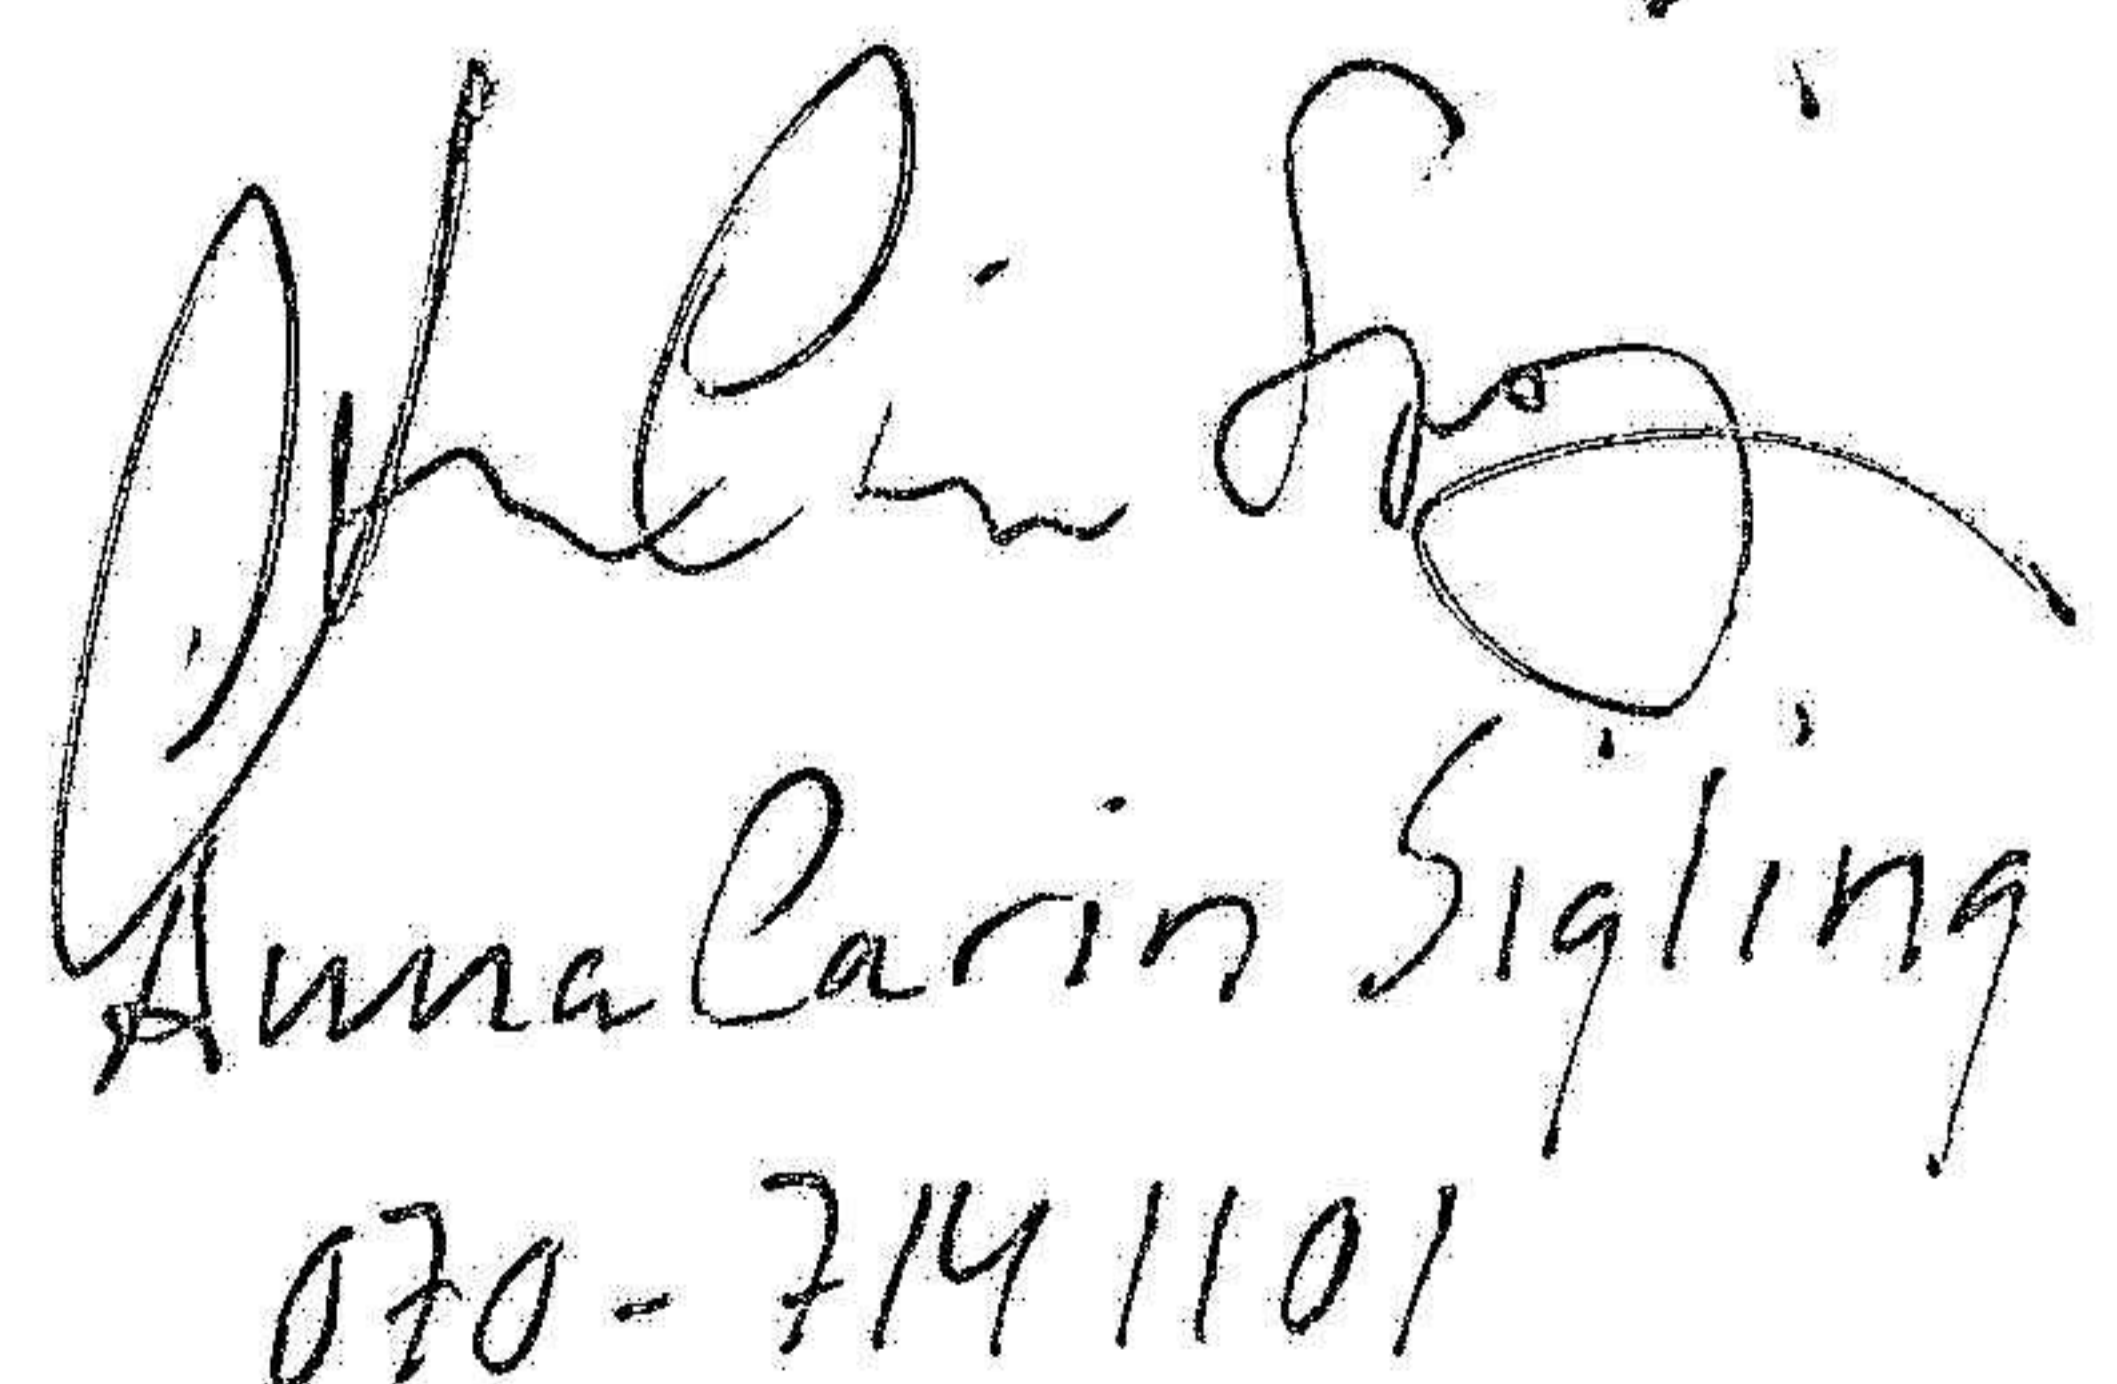 Anna Carin Sigling
070-714 1101